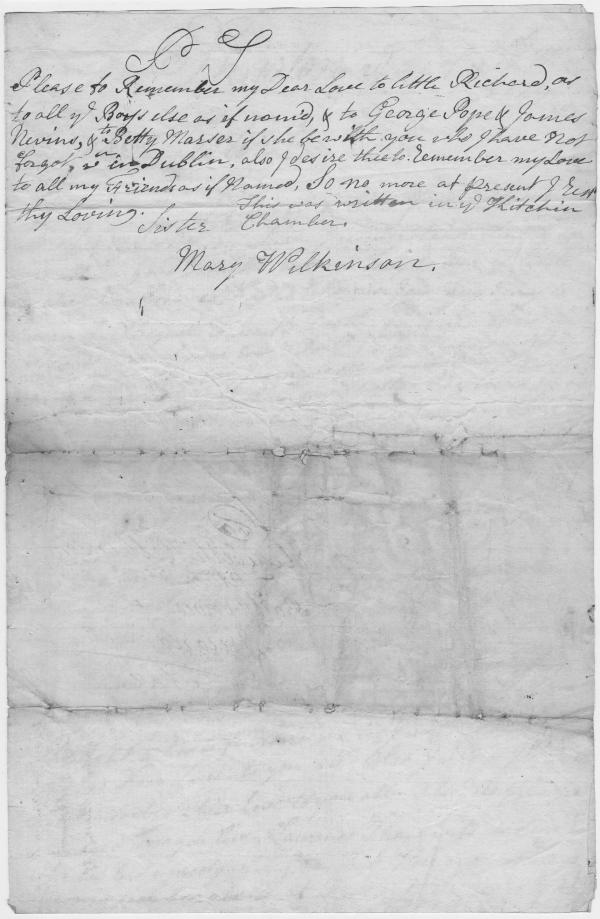 P S
Please to Remember my Dear Love to little Richard, as
to all yᵉ Boys else as if nam'd, & to George Pope & James
Nevins, & to Betty Marser if she be with you who I have not
forgot, wⁿ in Dublin, also I desire thee to remember my Love
to all my Friends as if Named, So no more at present I rest
thy Loving Sister
This was written in yᵉ Kitchin
Chamber.
Mary Wilkinson.